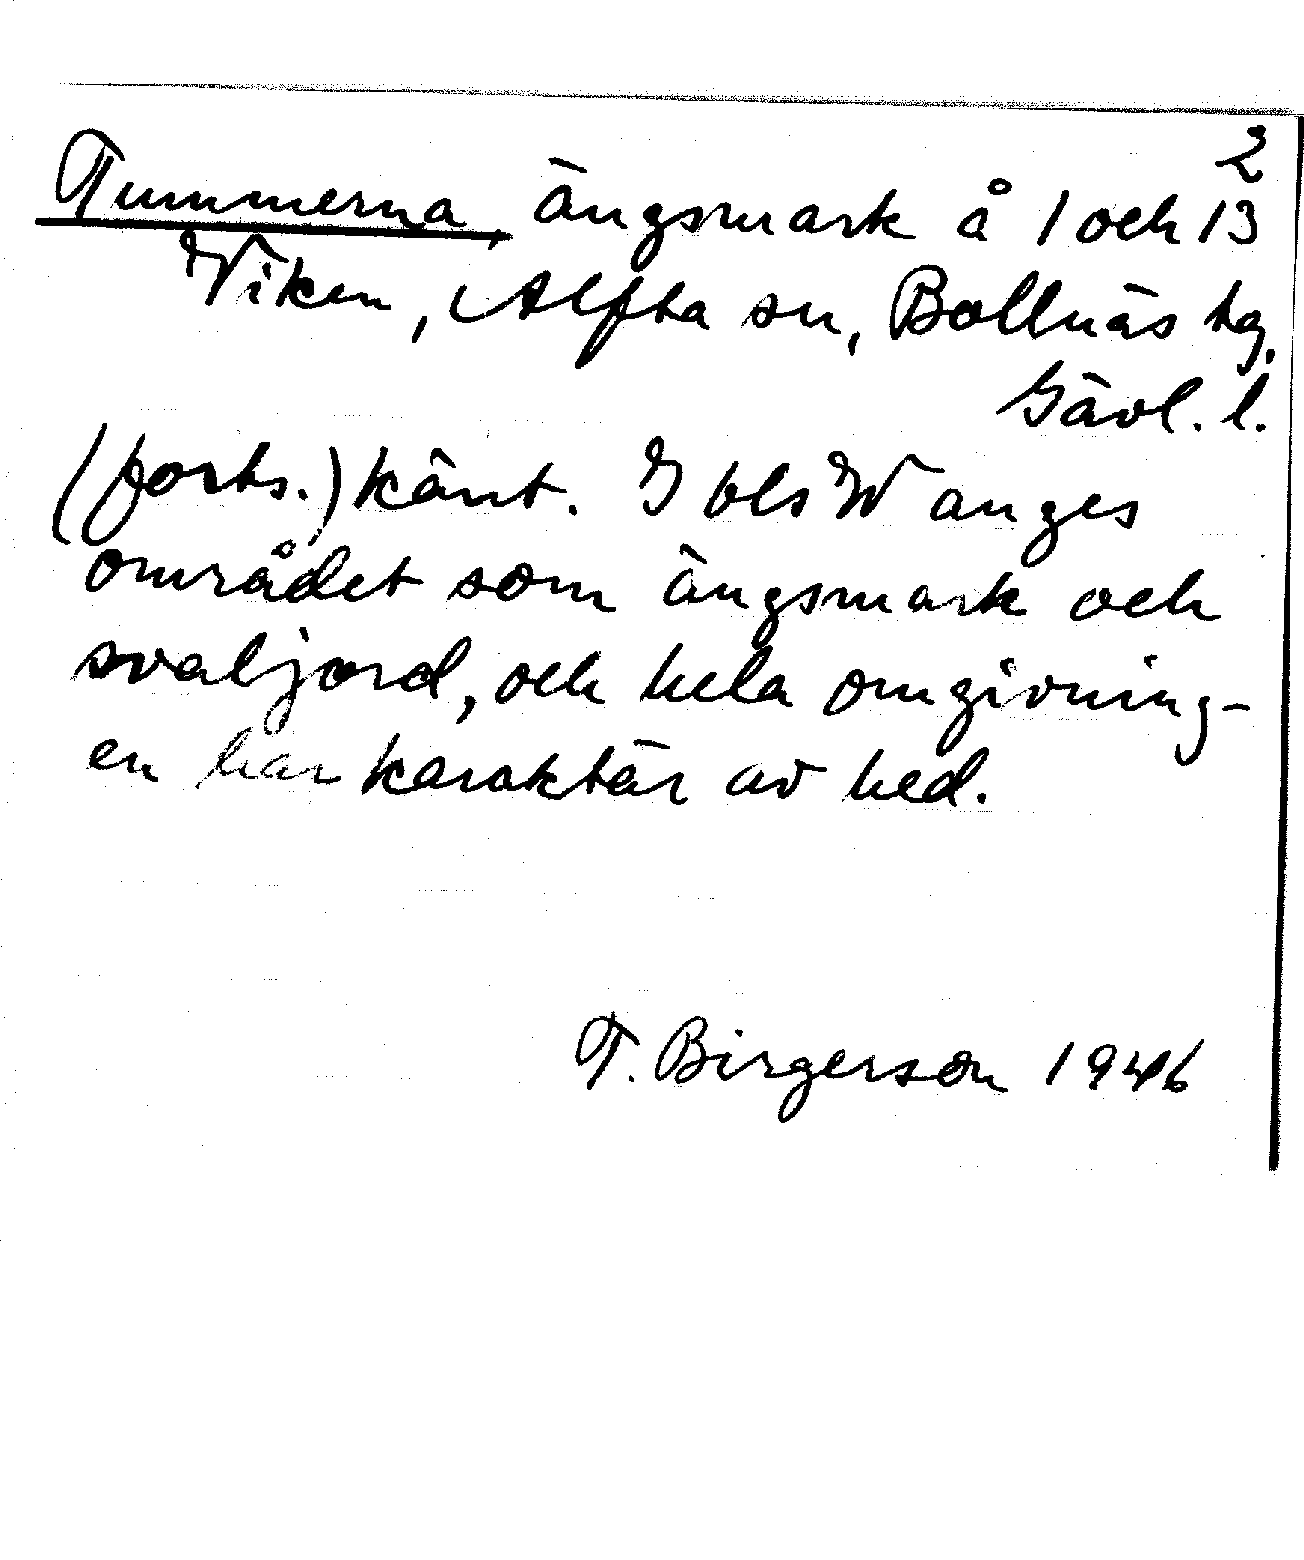 2
Tummerna, ängsmark å 1 och 13
Viken, Alfta sn, Bollnäs tg,
Gävl. l.
(forts.) känt. I bls W anges
området som ängsmark och
svaljord, och hela omgivning-
en har karaktär av hed.
T. Birgerson 1946